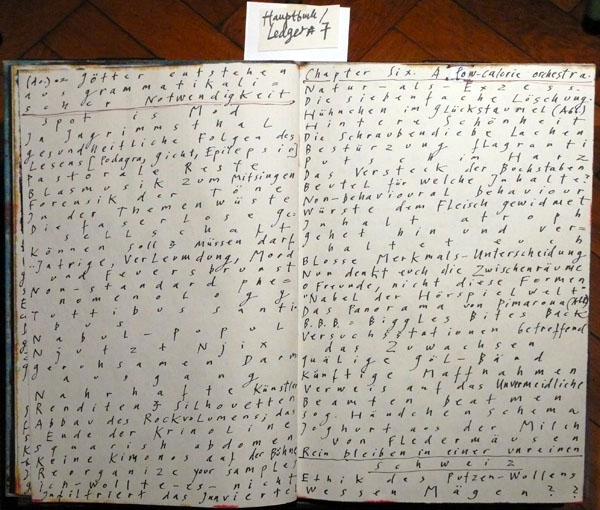 Hauptbuch/
Ledger # 7
Götter entstehen
a. grammatikali=
scher Notwendigkeit
Spot is Mod
In Jagrimmsthal
gesundheitliche Folgen des
Lesens [Podagra, Gicht, Epilepsie]
Pastorale Reste
Blasmusik zum Mitsingen
Forensik der Töne
In der Themenwüste
Die faserlose Ge=
sellschaft
Können soll & müssen darf
Intrige, Verleumdung, Mord
und Feuersbrunst
Non-standard phe=
nomenology
Tutti bus santi
bus
Nabul-Popul
Njutzt Njix
gerchsamen Darm
ausgang
Nahrhafte Künstler
Renditen & Silhouetten
Abbau des Rockvolumens; das
Ende der Krinoline
squanish abdomen
Kein Kimonos auf der Bühne
Reorganize your samples
ich-wollte-es-nicht
Indiltriert das Janviertel
Chapter Six. A low-calorie orchestra.
Natur-als-Exzess.
Die siebenfache Löschung.
Hühnchen im Glückstaumel (Abb)
Hintere Schönheit
Die Schraubendiebe lachen
Bestürzung flagranti
Putsch im Harz
Das Versteck der Buchstaben
Beutel für welche Inhalte?
Non-behavioural behaviour
Würste dem Fleisch gewidmet
Inhalt atroph
gehet hin und ver=
haltet euch
Blosse Merkmals-Unterscheidung
Nun denkt euch die Zwischenräume
O Freunde, nicht diese Formen
Nabel der Hörspielwelt
Das Panorama von Pimarona (Abb)
B.B.B. = Biggles Bites Back
Versuchsstationen betreffend
das Zuwachsen
quälige Göl-Bänd
Künftige Maffnahmen
Verweis auf das Unvermeidliche
Beamten beatmen
sog. Händchen schema
Joghurt aus der Milch
von Fledermäusen
Rein bleiben in einer unreinen
Schweiz
Ethik des Putzen-Wollens
Wessen Mägen??